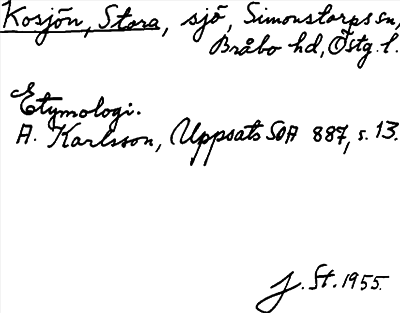 Kosjön, Stora, sjö, Simonstorps sn,
Bråbo hd, Östg. l.
Etymologi.
A. Karlsson, Uppsats SOA 887, s. 13.
J. St. 1955.